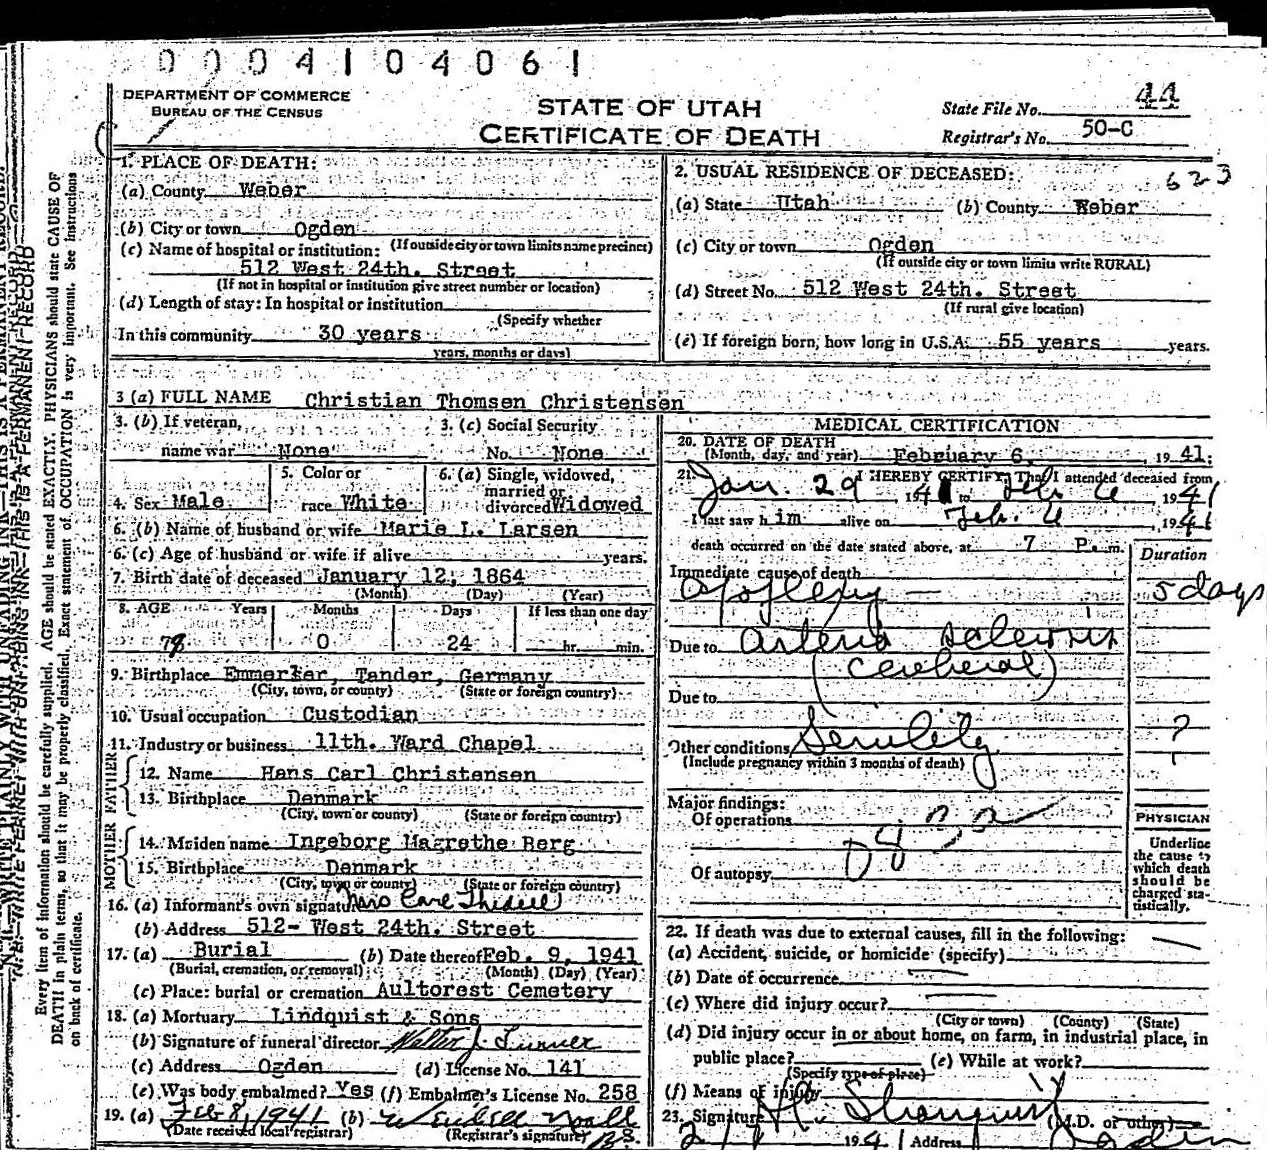 0004104061
DEPARTMENT OF COMMERCE
BUREAU OF THE CENSUS
STATE OF UTAH
CERTIFICATE OF DEATH
State File No. 44
Registrar's No. 50-C
1. PLACE OF DEATH:
(a) County Weber
(b) City or town Ogden
(If outside city or town limits name precinct)
(c) Name of hospital or institution:
512 West 24th. Street
(If not in hospital or institution give street number or location)
(d) Length of stay: In hospital or institution
(Specify whether
In this community 30 years
years, months or days)
2. USUAL RESIDENCE OF DECEASED:
623
(a) State Utah (b) County Weber
(c) City or town Ogden
(If outside city or town limits write RURAL)
(d) Street No. 512 West 24th. Street
(If rural give location)
(e) If foreign born, how long in U.S.A. 55 years years.
3 (a) FULL NAME Christian Thomsen Christensen
3. (b) If veteran, name war None
3. (c) Social Security No. None
4. Sex Male
5. Color or race White
6. (a) Single, widowed, married or divorced Widowed
6. (b) Name of husband or wife Marie L. Larsen
6. (c) Age of husband or wife if alive years.
7. Birth date of deceased January 12, 1864
(Month) (Day) (Year)
8. AGE Years Months Days If less than one day
0 24 hr. min.
9. Birthplace Emmerker, Tander, Germany
(City, town, or county) (State or foreign country)
10. Usual occupation Custodian
11. Industry or business 11th. Ward Chapel
FATHER
12. Name Hans Carl Christensen
13. Birthplace Denmark
(City, town or county) (State or foreign country)
MOTHER
14. Maiden name Ingeborg Magrethe Berg
15. Birthplace Denmark
(City, town or county) (State or foreign country)
16. (a) Informant's own signature Mrs Earl
(b) Address 512- West 24th. Street
17. (a) Burial (b) Date thereof Feb. 9, 1941
(Burial, cremation, or removal) (Month) (Day) (Year)
(c) Place: burial or cremation Aultorest Cemetery
18. (a) Mortuary Lindquist & Sons
(b) Signature of funeral director Walter J.
(c) Address Ogden (d) License No. 141
(e) Was body embalmed? Yes (f) Embalmer's License No. 258
19. (a) Feb 8, 1941 (b)
(Date received local registrar) (Registrar's signature)
MEDICAL CERTIFICATION
20. DATE OF DEATH
(Month, day, and year) February 6, 1941.
21. I HEREBY CERTIFY, That I attended deceased from
Jan. 29 1941 to Feb 6 1941
I last saw him alive on Feb. 6, 1941
death occurred on the date stated above, at 7 P. m.
Duration
Immediate cause of death
Apoplexy 5 days
Due to Arterio Sclerosis
(Cerebral)
Due to
Other conditions Senility ?
(Include pregnancy within 3 months of death)
Major findings:
Of operations
Of autopsy
PHYSICIAN
Underline the cause to which death should be charged statistically.
22. If death was due to external causes, fill in the following:
(a) Accident, suicide, or homicide (specify)
(b) Date of occurrence
(c) Where did injury occur?
(City or town) (County) (State)
(d) Did injury occur in or about home, on farm, in industrial place, in
public place? (e) While at work?
(Specify type of place)
(f) Means of injury
23. Signature (M.D. or other)
1941 Address Ogden
Every item of information should be carefully supplied. AGE should be stated EXACTLY. PHYSICIANS should state CAUSE OF
DEATH in plain terms, so that it may be properly classified. Exact statement of OCCUPATION is very important. See instructions
on back of certificate.